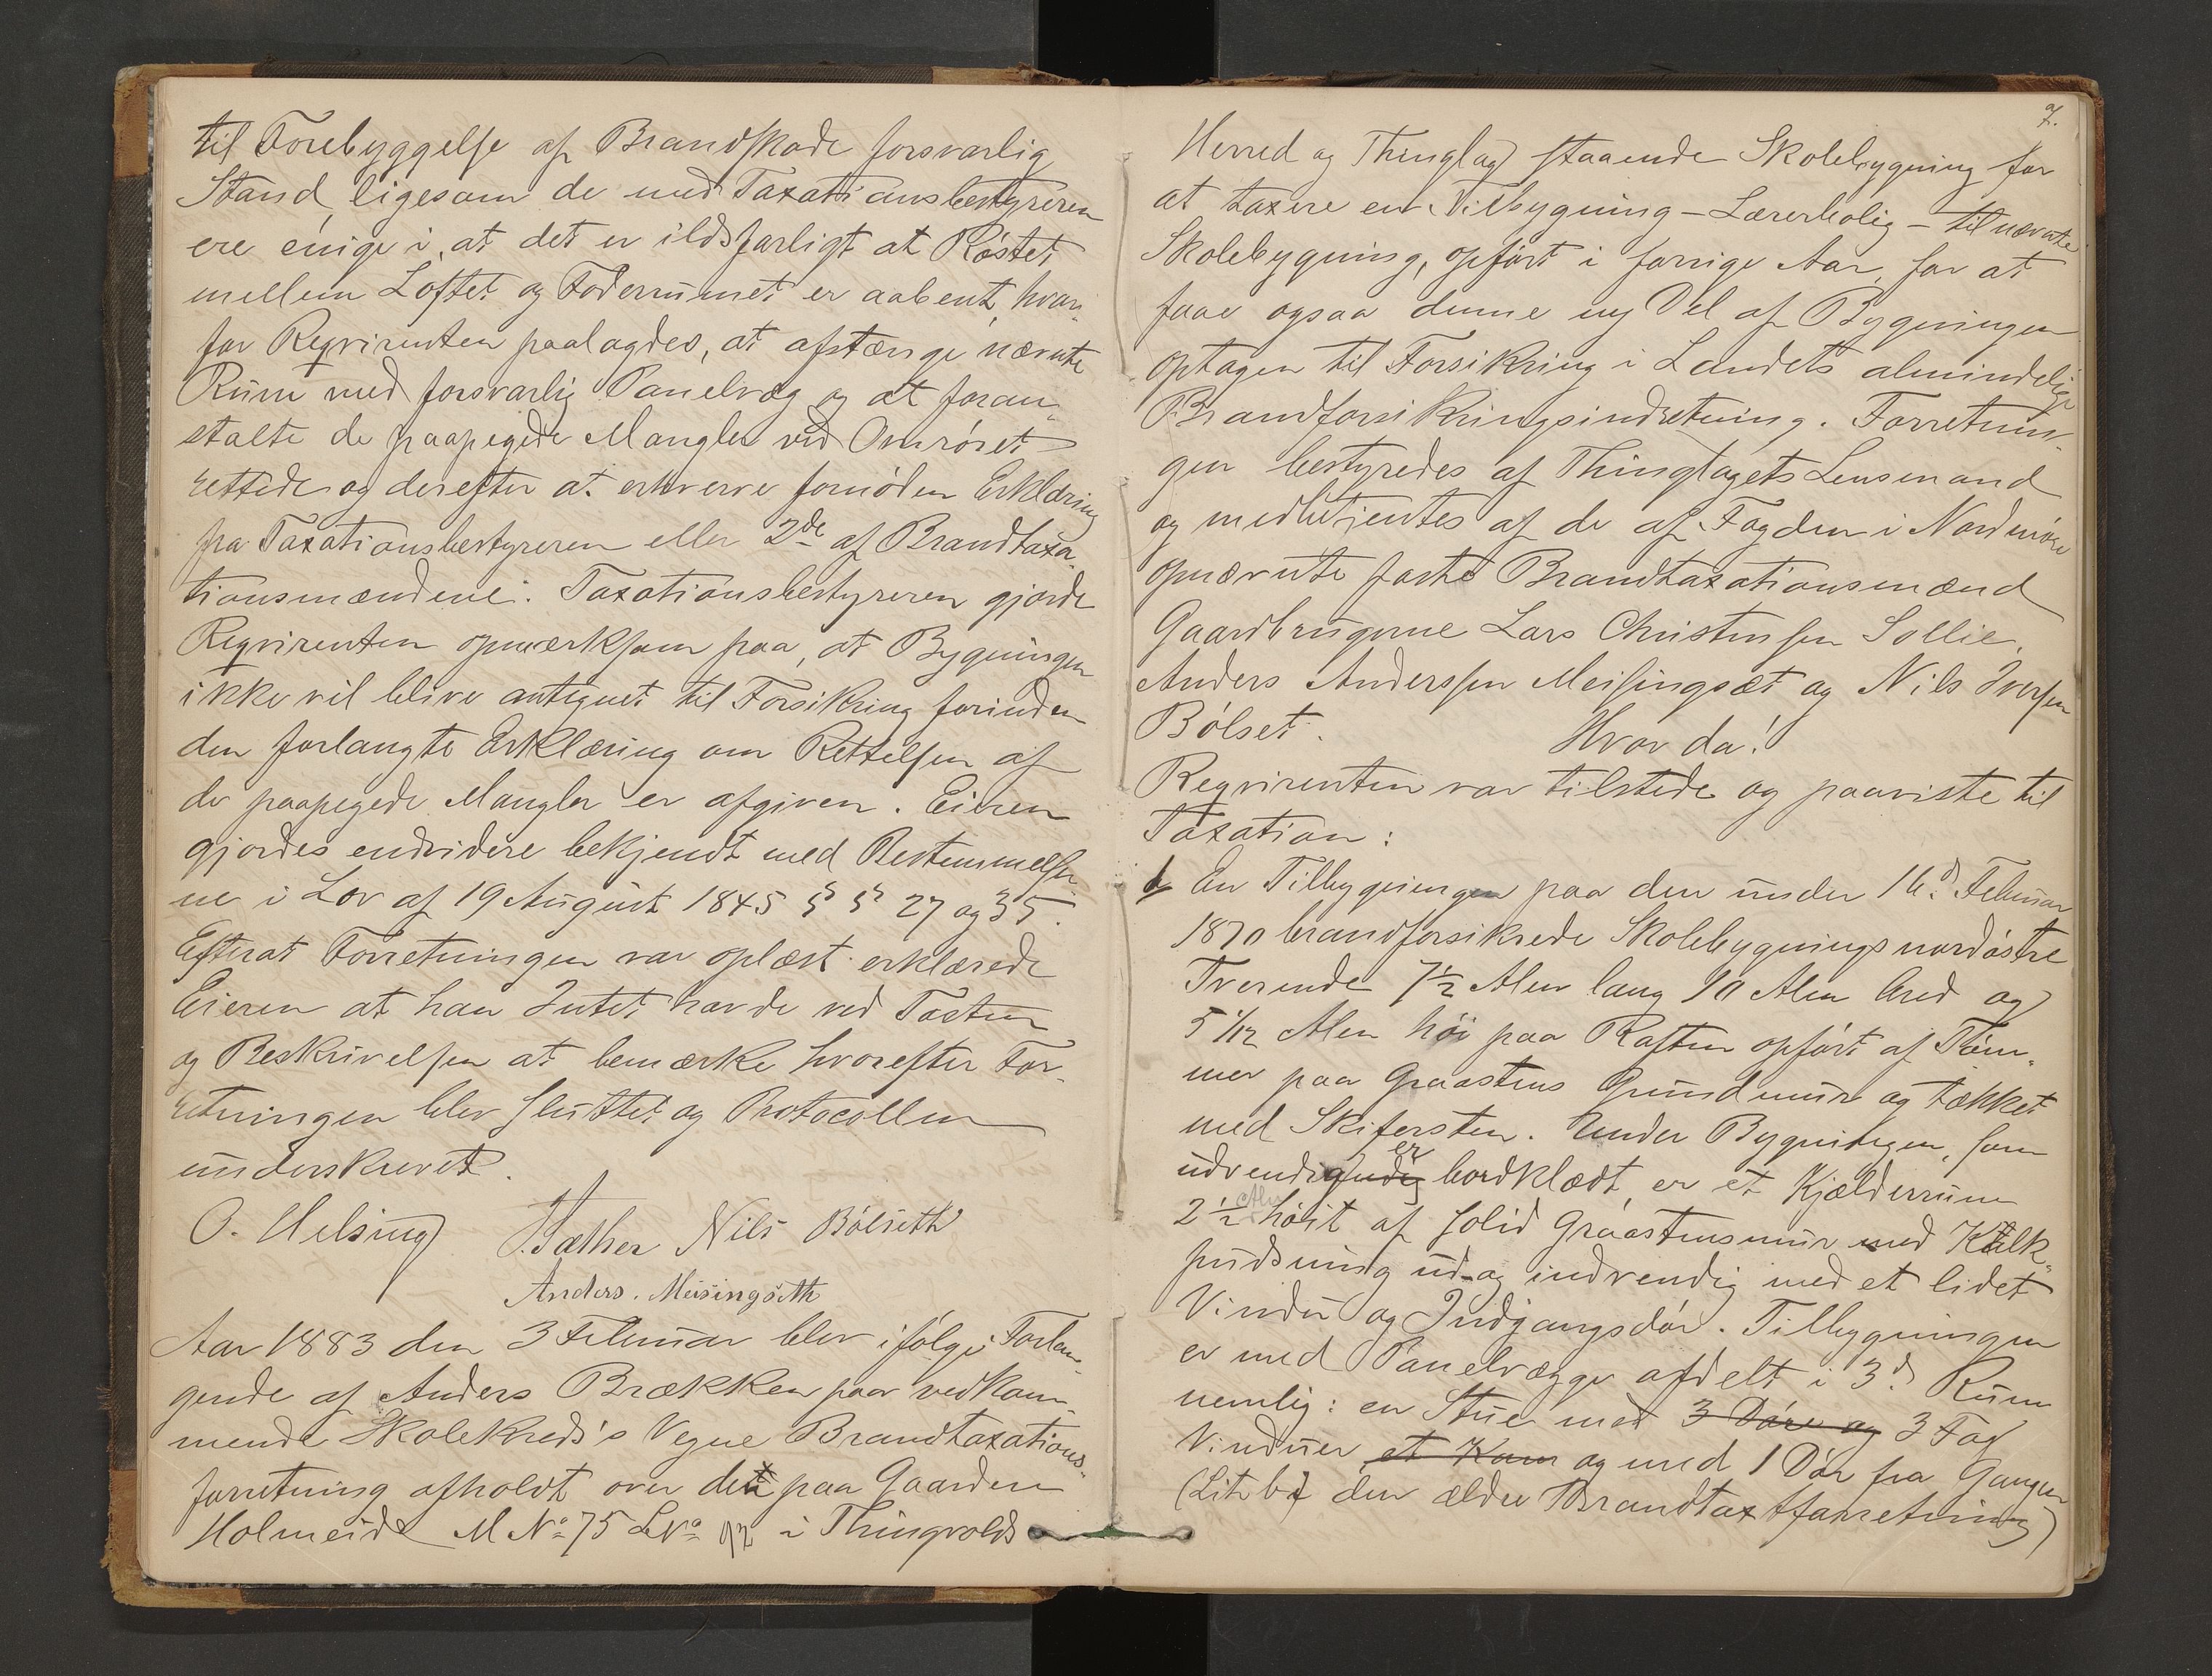 til Forebyggelse af Brandskade forsvarlig
Stand, ligesom de med Taxationsbestyreren
ere enige i, at det er ildsfarligt at Röstet
mellem Loftet og Foderrumet er aabent, hvor-
for Reqvirenten paalagdes, at afstænge nævnte
Rum med forsvarlig Panelvæg og at foran-
stalte de paapegede Mangler ved Omröret
rettede og derefter at erhverve fornöden Erklæring
fra Taxationsbestyreren eller 2de af Brandtaxa-
tionsmændene. Taxationsbestyreren gjorde
Reqvirenten opmærksom paa, at Bygningen
ikke vil blive antegnet til Forsikring forinden
den forlangte Erklæring om Rettelsen af
de paapegede Mangler er afgiven. Eieren
gjordes endvidere bekjendt med Bestemmelser-
ne i Lov af 19 August 1845 § § 27 og 35.
Efterat Forretningen var oplæst erklærede
Eieren at han Intet havde ved Taxten
og Beskrivelsen at bemærke hvorefter For-
retningen blev sluttet og Protocollen
underskrevet.
O. Helsing Nils Bölseth
Anders. Meisingseth
Aar 1883 den 3 Februar blev ifölge Forlan-
gende af Anders Brækken paa vedkom-
mende Skolekreds's Vegne Brandtaxations-
forretning afholdt over det paa Gaarden
Holmeide M No 75 L No 92 i Thingvolds
7.
Herred og Thinglag staaende Skolebygning for
at taxere en Tilbygning - Lærerbolig - til nævnte
Skolebygning, opfört i forrige Aar, for at
faae ogsaa denne ny Del af Bygningen
optagen til Forsikring i Landets almindelige
Brandforsikringsindretning. Forretnin-
gen bestyredes af Thinglagets Lensmand
og medbetjentes af de af Fogden i Nordmöre
opnævnte faste Brandtaxationsmænd
Gaardbrugerne Lars Christensen Sollie,
Anders Anderssen Meisingsæt og Nils Iversen
Bölset. Hvor da!
Reqvirenten var tilstede og paaviste til
Taxation:
b En Tilbygningen paa den under 16d Februar
1870 brandforsikrede Skolebygnings nordöstre
Tverende 7½ Alen lang 10 Alen bred og
5 1/12 Alen höi paa Raften opfört af Töm-
mer paa Graastens Grundmur og tækket
med Skifersten. Under Bygningen, som
udvendig er bordklædt, er et Kjælderrum
2½ Alen höit af solid Graastensmur med Kalk-
pudsning ud- og indvendig med et lidet
Vindu og Indgangsdör. Tilbygningen
er med Panelvægge afdelt i 3d Rum
nemlig: en Stue med 3 Döre og 3 Fag
Vinduer et Kam og med 1 Dör fra Gangen
(Litr b i den ældre Brandtaxtforretning)